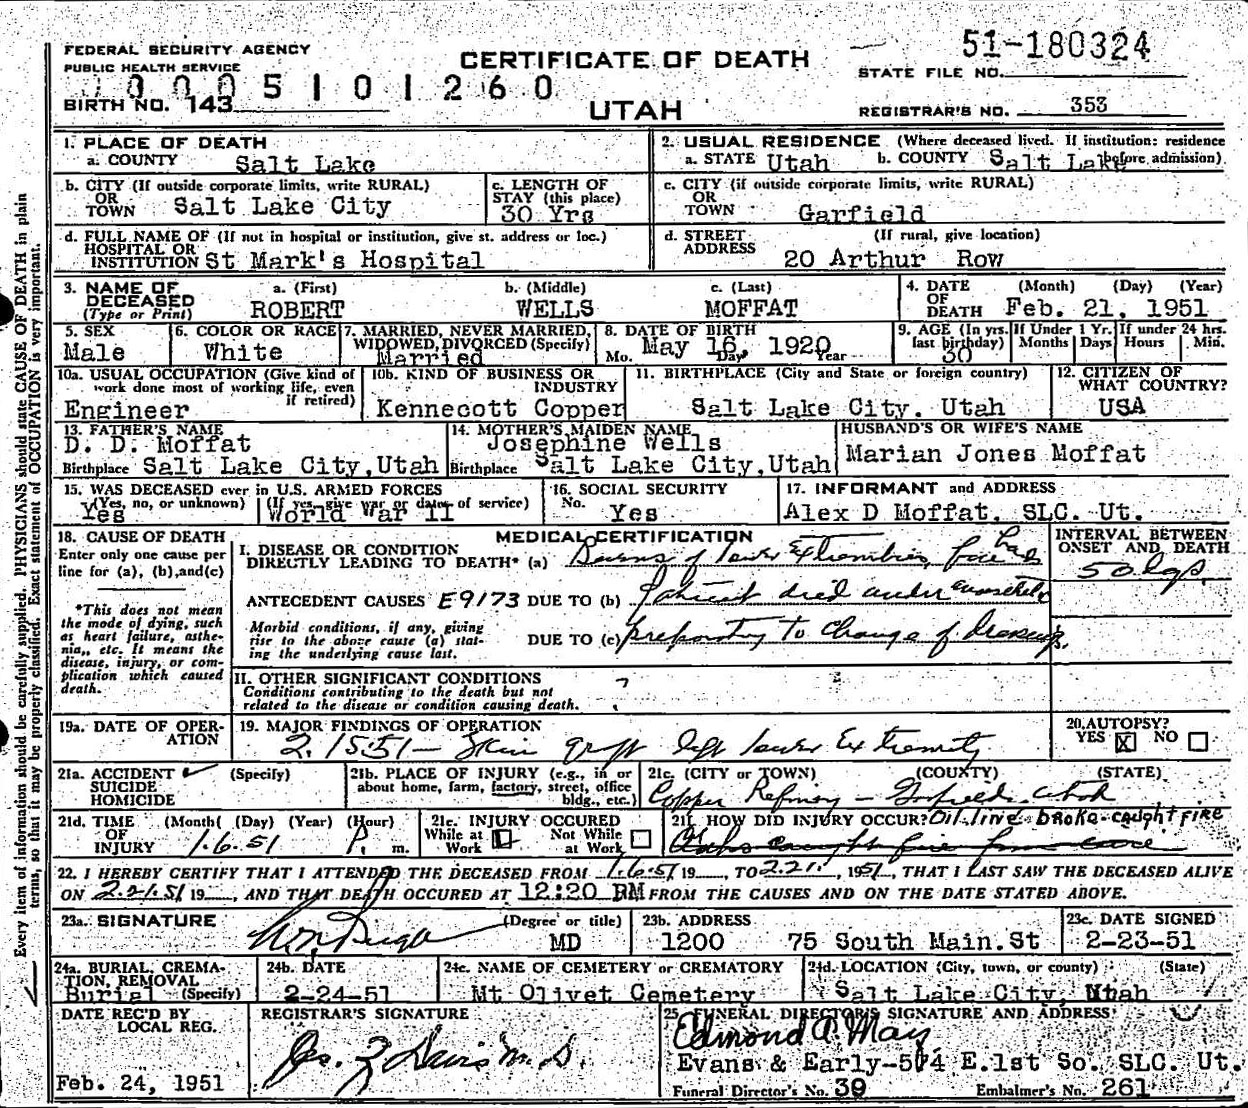 FEDERAL SECURITY AGENCY
PUBLIC HEALTH SERVICE
CERTIFICATE OF DEATH
51-180324
STATE FILE NO.
0005101260
BIRTH NO. 143
UTAH
REGISTRAR'S NO. 353
1. PLACE OF DEATH
a. COUNTY Salt Lake
2. USUAL RESIDENCE (Where deceased lived. If institution: residence before admission)
a. STATE Utah b. COUNTY Salt Lake
b. CITY (If outside corporate limits, write RURAL)
OR
TOWN Salt Lake City
c. LENGTH OF
STAY (this place)
30 Yrs
c. CITY (if outside corporate limits, write RURAL)
OR
TOWN Garfield
d. FULL NAME OF (If not in hospital or institution, give st. address or loc.)
HOSPITAL OR
INSTITUTION St Mark's Hospital
d. STREET (If rural, give location)
ADDRESS
20 Arthur Row
3. NAME OF DECEASED
(Type or Print)
a. (First) b. (Middle) c. (Last)
ROBERT WELLS MOFFAT
4. DATE OF DEATH (Month) (Day) (Year)
Feb. 21, 1951
5. SEX
Male
6. COLOR OR RACE
White
7. MARRIED, NEVER MARRIED,
WIDOWED, DIVORCED (Specify)
Married
8. DATE OF BIRTH
May 16, 1920
Mo. Day Year
9. AGE (In yrs. last birthday)
30
If Under 1 Yr.
Months Days
If under 24 hrs.
Hours Min.
10a. USUAL OCCUPATION (Give kind of
work done most of working life, even
if retired)
Engineer
10b. KIND OF BUSINESS OR
INDUSTRY
Kennecott Copper
11. BIRTHPLACE (City and State or foreign country)
Salt Lake City. Utah
12. CITIZEN OF
WHAT COUNTRY?
USA
13. FATHER'S NAME
D. D. Moffat
Birthplace Salt Lake City,Utah
14. MOTHER'S MAIDEN NAME
Josephine Wells
Birthplace Salt Lake City,Utah
HUSBAND'S OR WIFE'S NAME
Marian Jones Moffat
15. WAS DECEASED ever in U.S. ARMED FORCES
(Yes, no, or unknown) (If yes, give war or dates of service)
Yes World War II
16. SOCIAL SECURITY
No. Yes
17. INFORMANT and ADDRESS
Alex D Moffat, SLC. Ut.
18. CAUSE OF DEATH
Enter only one cause per
line for (a), (b),and(c)
*This does not mean
the mode of dying, such
as heart failure, asthe-
nia,, etc. It means the
disease, injury, or com-
plication which caused
death.
MEDICAL CERTIFICATION
I. DISEASE OR CONDITION
DIRECTLY LEADING TO DEATH* (a) Burns of lower Extremities, face
INTERVAL BETWEEN
ONSET AND DEATH
50
ANTECEDENT CAUSES E9173 DUE TO (b) Patient died under
Morbid conditions, if any, giving
rise to the above cause (a) stat-
ing the underlying cause last.
DUE TO (c) preparatory to change of dressings.
II. OTHER SIGNIFICANT CONDITIONS
Conditions contributing to the death but not
related to the disease or condition causing death.
19a. DATE OF OPER-
ATION
19. MAJOR FINDINGS OF OPERATION
2.15.51 - Skin graft left lower Extremity
20. AUTOPSY?
YES X NO
21a. ACCIDENT ✓ (Specify)
SUICIDE
HOMICIDE
21b. PLACE OF INJURY (e.g., in or
about home, farm, factory, street, office
bldg., etc.)
21c. (CITY or TOWN) (COUNTY) (STATE)
Copper Refinery - Garfield Utah
21d. TIME OF INJURY (Month) (Day) (Year) (Hour)
1.6.51 P. m.
21e. INJURY OCCURED
While at Work
Not While at Work
21f. HOW DID INJURY OCCUR? Oil line broke-caught fire
22. I HEREBY CERTIFY THAT I ATTENDED THE DECEASED FROM 1.6.51 19__, TO 2.21., 1951, THAT I LAST SAW THE DECEASED ALIVE
ON 2.21.51 19__, AND THAT DEATH OCCURED AT 12:20 PM FROM THE CAUSES AND ON THE DATE STATED ABOVE.
23a. SIGNATURE (Degree or title)
MD
23b. ADDRESS
1200 75 South Main. St
23c. DATE SIGNED
2-23-51
24a. BURIAL, CREMA-
TION, REMOVAL
(Specify)
Burial
24b. DATE
2-24-51
24c. NAME OF CEMETERY or CREMATORY
Mt Olivet Cemetery
24d. LOCATION (City, town, or county) (State)
Salt Lake City, Utah
DATE REC'D BY
LOCAL REG.
Feb. 24, 1951
REGISTRAR'S SIGNATURE
Jas. Z Davis M.D.
25 FUNERAL DIRECTOR'S SIGNATURE AND ADDRESS
Edmond A. May
Evans & Early-574 E.1st So. SLC. Ut.
Funeral Director's No. 39 Embalmer's No. 261
Every item of information should be carefully supplied. PHYSICIANS should state CAUSE OF DEATH in plain
terms, so that it may be properly classified. Exact statement of OCCUPATION is very important.